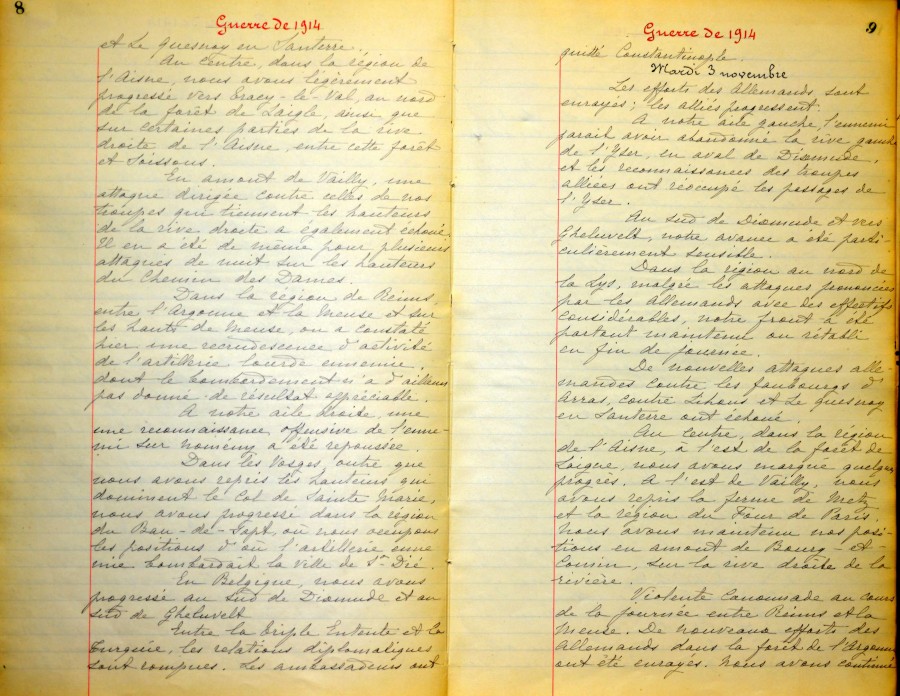 8
Guerre de 1914
et Le Quesnoy en Santerre.
Au centre, dans la région de
l'Aisne, nous avons légèrement
progressé vers Tracy-le-Val, au nord
de la forêt de Laigle, ainsi que
sur certaines parties de la rive
droite de l'Aisne, entre cette forêt
et Soissons.
En amont de Vailly, une
attaque dirigée contre celles de nos
troupes qui tiennent les hauteurs
de la rive droite a également échoué.
Il en a été de même pour plusieurs
attaques de nuit sur les hauteurs
du Chemin des Dames.
Dans la région de Reims,
entre l'Argonne et la Meuse et sur
les hauts de Meuse, on a constaté
hier une recrudescence d'activité
de l'artillerie lourde ennemie,
dont le bombardement n'a d'ailleurs
pas donné de résultat appréciable.
A notre aile droite, une
une reconnaissance offensive de l'enne-
mi sur Nomény a été repoussée.
Dans les Vosges, outre que
nous avons repris les hauteurs qui
dominent le Col de Sainte Marie,
nous avons progressé dans la région
du Ban-de-Sapt, où nous occupons
les positions d'où l'artillerie enne
mie bombardait la ville de St-Dié.
En Belgique, nous avons
progressé au sud de Dixmude et au
sud de Gheluvelt.
Entre la Triple Entente et la
Turquie, les relations diplomatiques
sont rompues. Les ambassadeurs ont
9
Guerre de 1914
quitté Constantinople.
Mardi 3 novembre
Les efforts des Allemands sont
enrayés; les alliés progressent.
A notre aile gauche, l'ennemi
parait avoir abandonné la rive gauche
de l'Yser, en aval de Dixmude,
et les reconnaissances des troupes
alliées ont réoccupé les passages de
l'Yser.
Au sud de Dixmude et vers
Gheluvelt, notre avance a été parti-
culièrement sensible.
Dans la région au nord de
la Lys, malgré les attaques prononcées
par les Allemands avec des effectifs
considérables, notre front a été
partout maintenu ou rétabli
en fin de journée.
De nouvelles attaques alle-
mandes contre les faubourgs d'
Arras, contre Lihons et Le Quesnoy
en Santerre ont échoué.
Au centre, dans la région
de l'Aisne, à l'est de la forêt de
Laigue, nous avons marqué quelques
progrès. A l'est de Vailly, nous
avons repris la ferme de Metz
et la région du Four de Paris.
Nous avons maintenu nos posi-
tions en amont de Bourg-et-
Comin, sur la rive droite de la
rivière.
Violente canonnade au cours
de la journée entre Reims et la
Meuse. De nouveaux efforts des
Allemands dans la forêt de l'Argonne
ont été enrayés. Nous avons continué